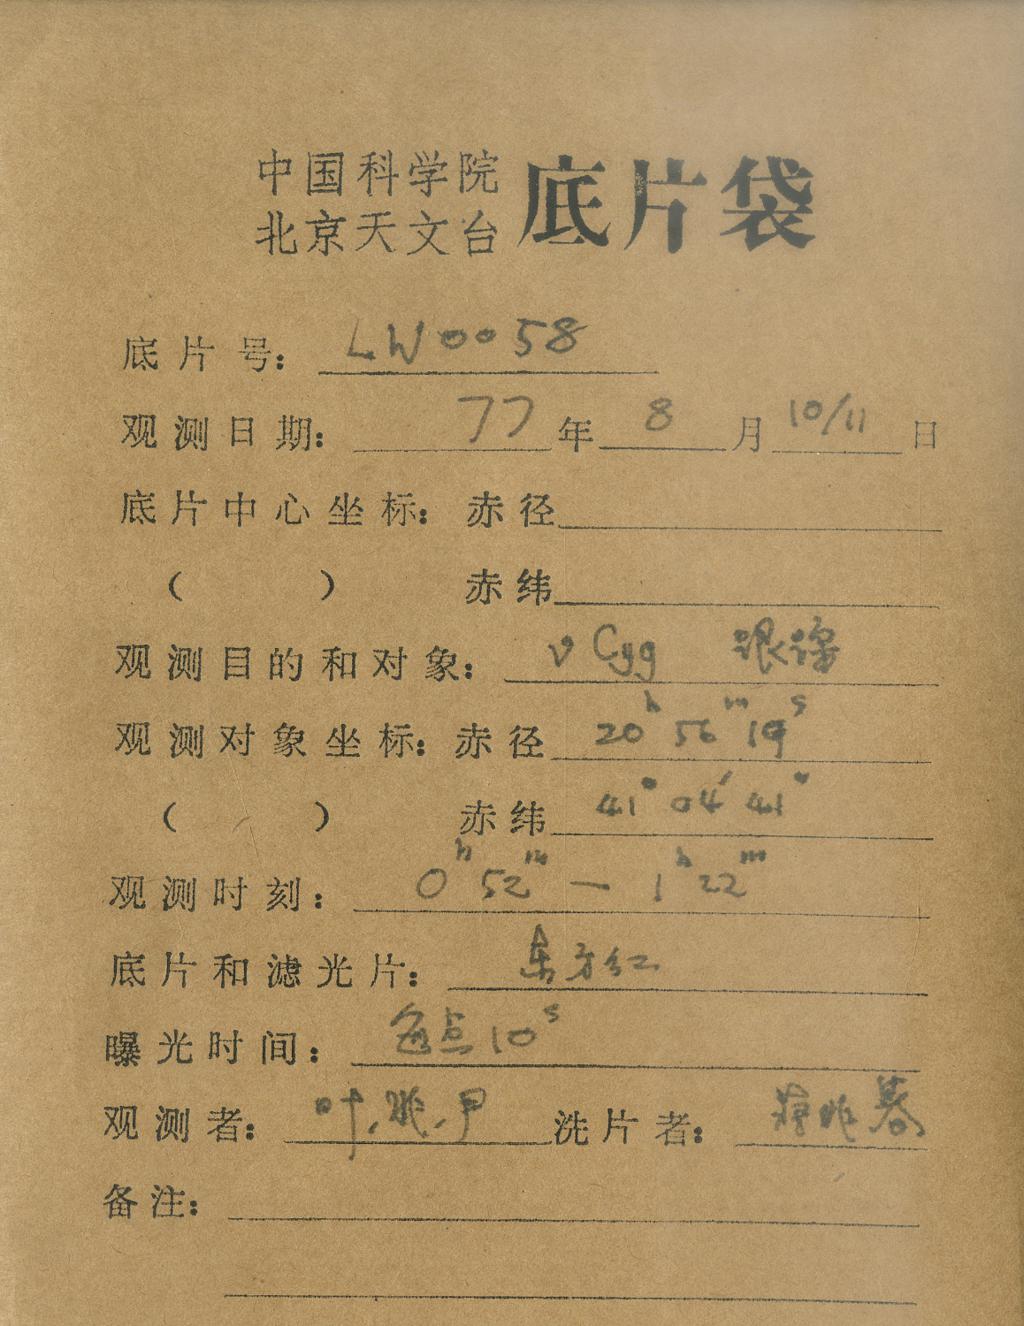 中国科学院
北京天文台 底片袋
底片号： LW0058
观测日期： 77 年 8 月 10/11 日
底片中心坐标：赤径
（ ） 赤纬
观测目的和对象： ν Cyg
观测对象坐标：赤径 20h 56m 19s
（ ） 赤纬 41° 04′ 41″
观测时刻： 0h 52m — 1h 22m
底片和滤光片： 东方红
曝光时间： 每点 10s
观测者： 叶、姚、尹 洗片者：
备注：